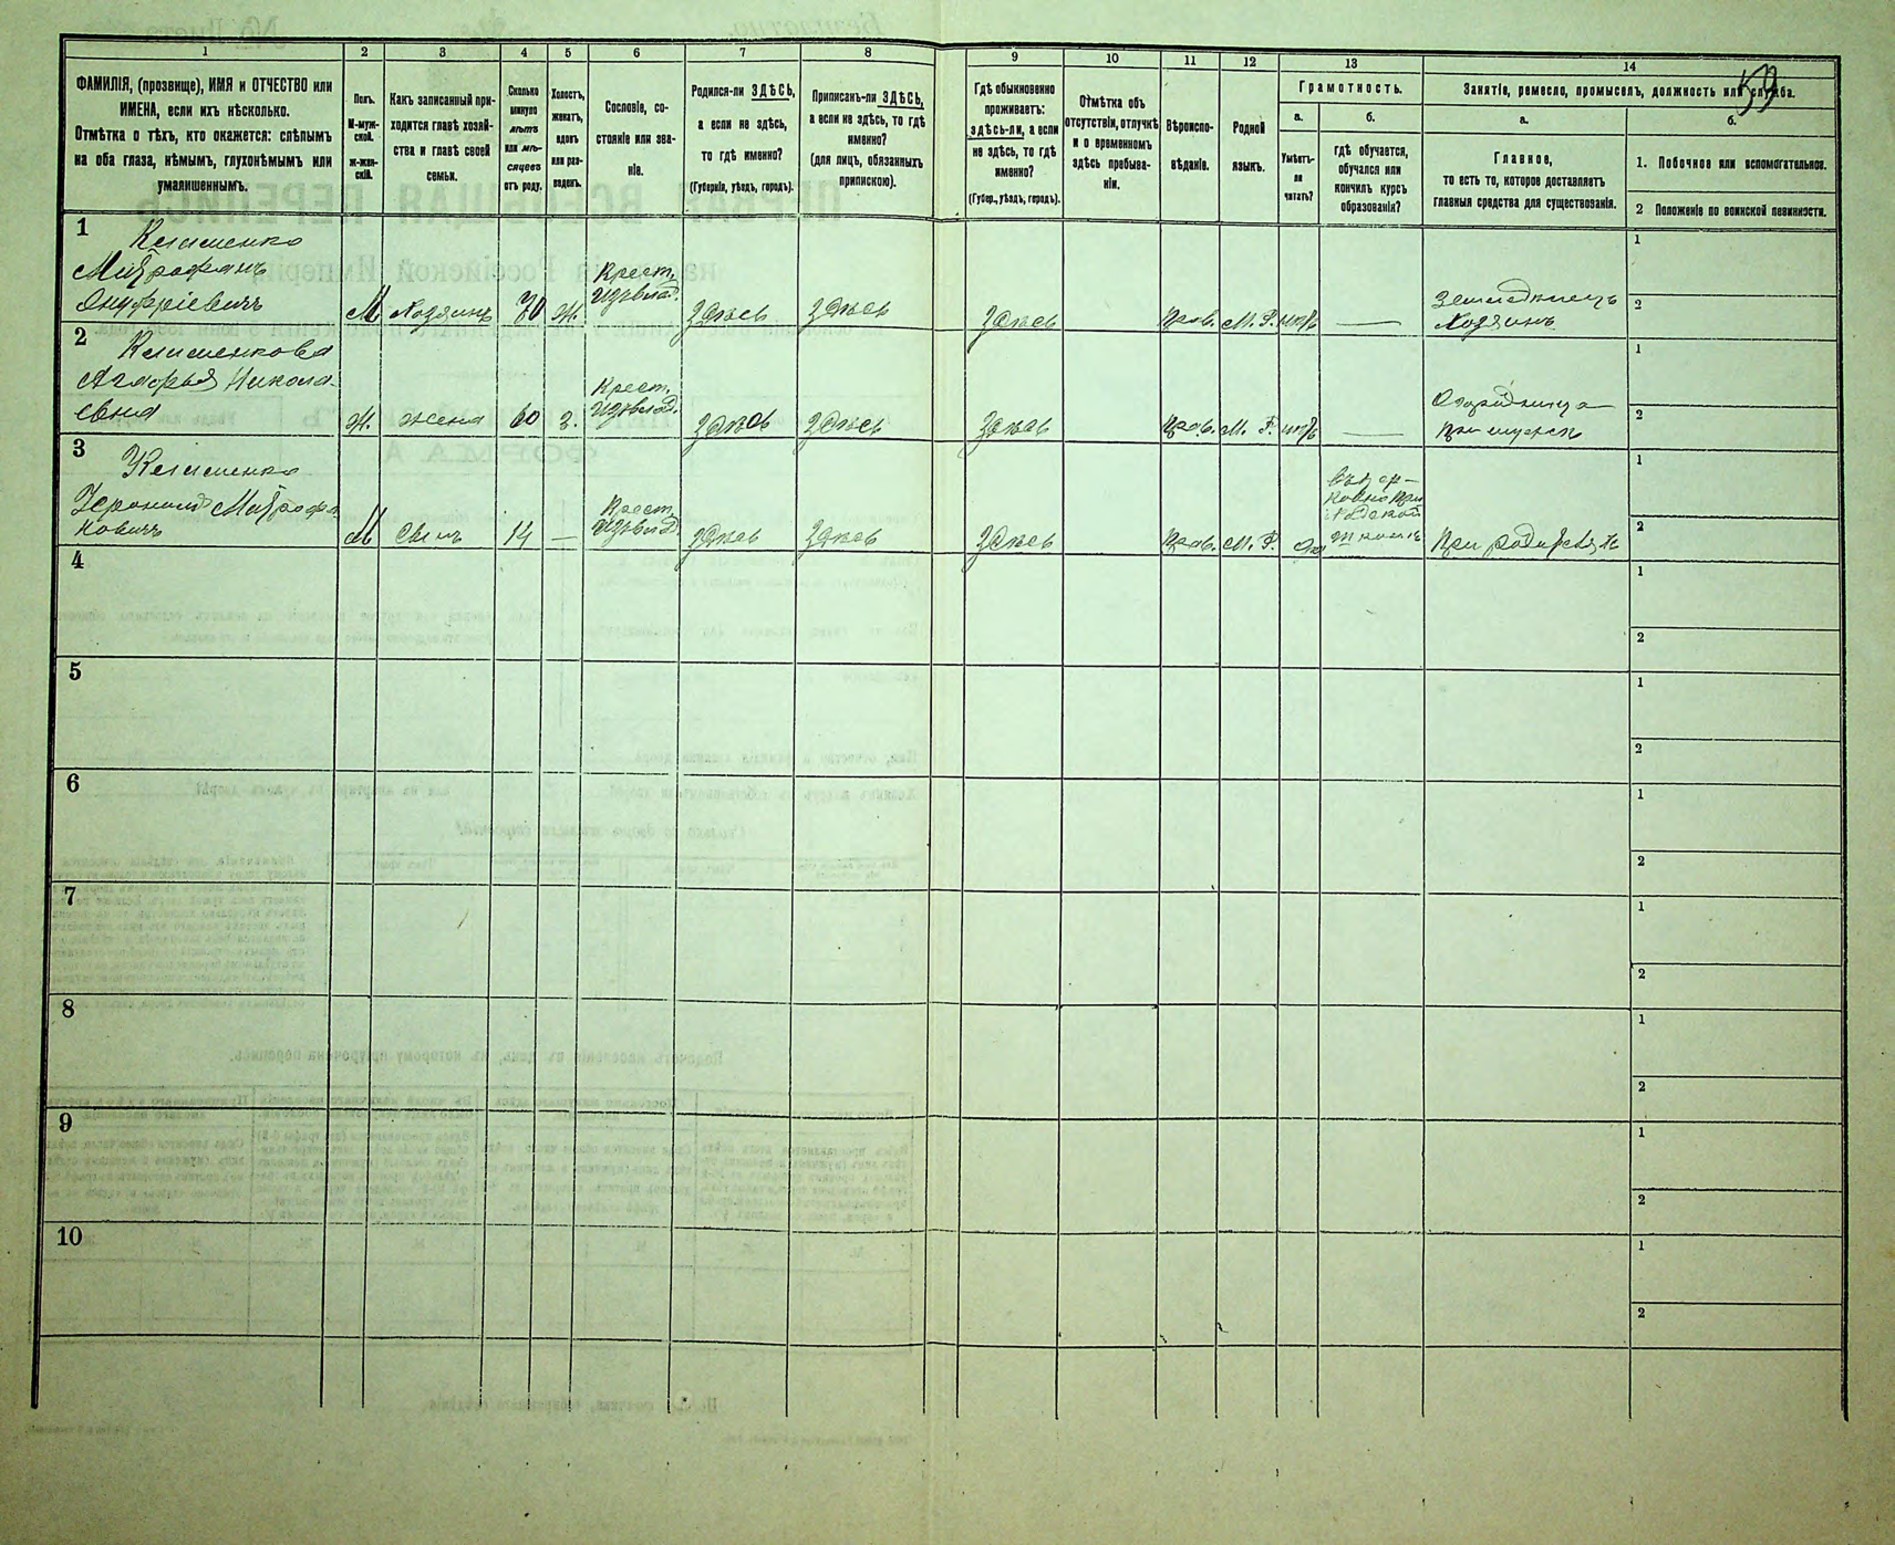 1 2 3 4 5 6 7 8 9 10 11 12 13 14
ФАМИЛІЯ, (прозвище), ИМЯ и ОТЧЕСТВО или
ИМЕНА, если ихъ нѣсколько.
Отмѣтка о тѣхъ, кто окажется: слѣпымъ
на оба глаза, нѣмымъ, глухонѣмымъ или
умалишеннымъ.
Полъ.
М-муж-
ской.
ж-жен-
скій.
Какъ записанный при-
ходится главѣ хозяй-
ства и главѣ своей
семьи.
Сколько
минуло
лѣтъ
или мѣ-
сяцевъ
отъ роду.
Холостъ,
женатъ,
вдовъ
или раз-
веденъ.
Сословіе, со-
стояніе или зва-
ніе.
Родился-ли ЗДѢСЬ,
а если не здѣсь,
то гдѣ именно?
(Губернія, уѣздъ, городъ).
Приписанъ-ли ЗДѢСЬ,
а если не здѣсь, то гдѣ
именно?
(для лицъ, обязанныхъ
припискою).
Гдѣ обыкновенно
проживаетъ:
здѣсь-ли, а если
не здѣсь, то гдѣ
именно?
(Губер., уѣздъ, городъ).
Отмѣтка объ
отсутствіи, отлучкѣ
и о временномъ
здѣсь пребыва-
ніи.
Вѣроиспо-
вѣданіе.
Родной
языкъ.
Грамотность.
а.
Умѣетъ-
ли
читать?
б.
гдѣ обучается,
обучался или
кончилъ курсъ
образованія?
Занятіе, ремесло, промыселъ, должность или служба.
59
а.
Главное,
то есть то, которое доставляетъ
главныя средства для существованія.
б.
1. Побочное или вспомогательное.
2 Положеніе по воинской повинности.
1
Клименко
Митрофанъ
Онуфріевичъ
М
Хозяинъ
70
Ж.
Крест.
изъ влад.
здѣсь
здѣсь
здѣсь
Прав.
М. Р.
нѣтъ
—
Земледѣлецъ
Хозяинъ
1
2
2
Клименкова
Агафья Никола-
евна
Ж.
жена
60
З.
Крест.
изъ влад.
здѣсь
здѣсь
здѣсь
Прав.
М. Р.
нѣтъ
—
при мужѣ
1
2
3
Клименко
Митрофа-
новичъ
М
Сынъ
14
—
Крест.
изъ влад.
здѣсь
здѣсь
здѣсь
Прав.
М. Р.
да
въ цер-
ковно при-
ходской
школѣ
При родителяхъ
1
2
4
1
2
5
1
2
6
1
2
7
1
2
8
1
2
9
1
2
10
1
2